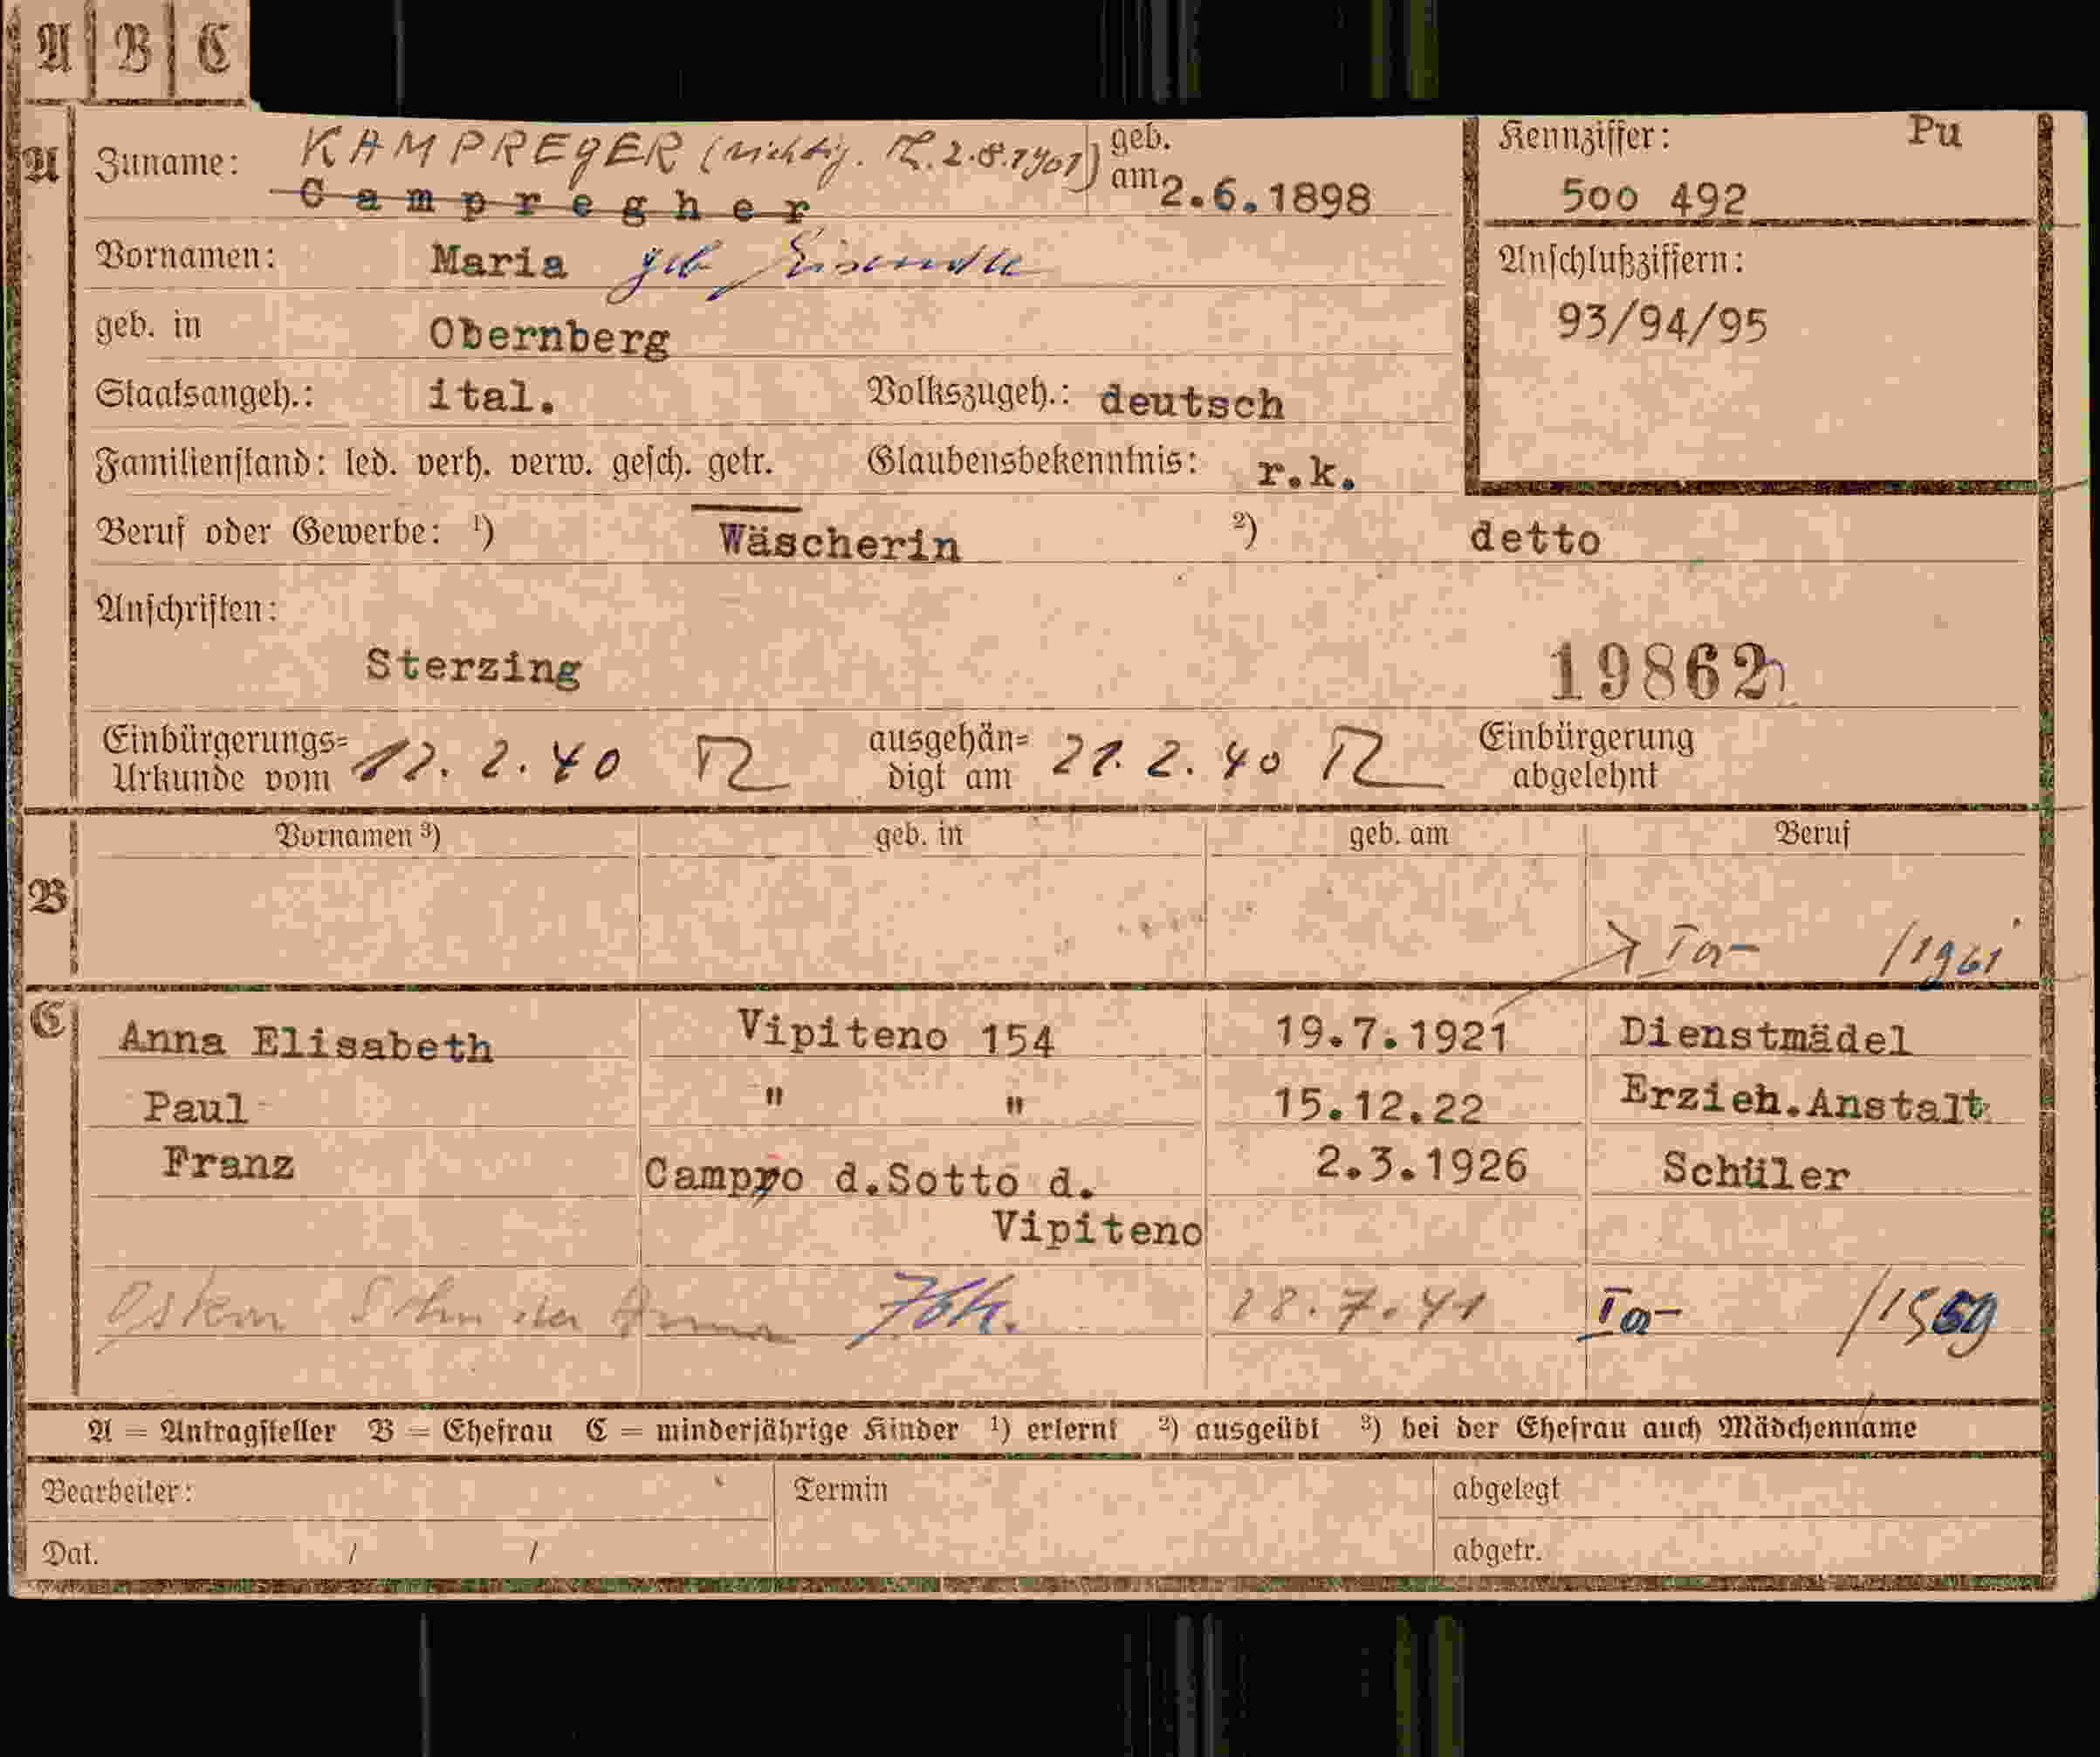 A B C
A
Zuname: KAMPREGER (richtig. 2.8.1901) geb. am 2.6.1898
Campregher
Kennziffer: Pu
500 492
Vornamen: Maria geb
Anschlußziffern:
93/94/95
geb. in Obernberg
Staatsangeh.: ital. Volkszugeh.: deutsch
Familienstand: led. verh. verw. gesch. getr. Glaubensbekenntnis: r.k.
Beruf oder Gewerbe: ¹) Wäscherin ²) detto
Anschriften:
Sterzing
19862
Einbürgerungs= Urkunde vom 12.2.40 ausgehän= digt am 21.2.40 Einbürgerung abgelehnt
Vornamen ³) geb. in geb. am Beruf
B
/1961
C
Anna Elisabeth Vipiteno 154 19.7.1921 Dienstmädel
Paul " " 15.12.22 Erzieh.Anstalt
Franz Campo d.Sotto d. 2.3.1926 Schüler
Vipiteno
Sohn der Anna 28.7.41 /1559
A = Antragsteller B = Ehefrau C = minderjährige Kinder ¹) erlernt ²) ausgeübt ³) bei der Ehefrau auch Mädchenname
Bearbeiter: Termin abgelegt
Dat. / / abgetr.